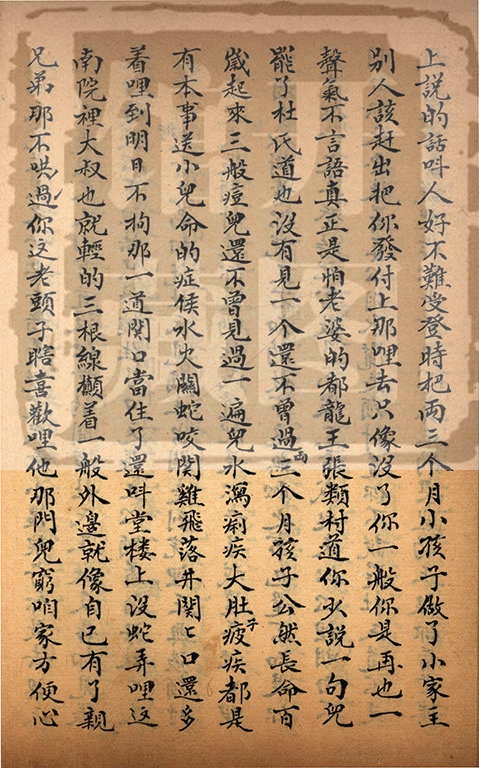 上說的話呌人好不難受登時把両三个月小孩子做了小家主
别人該赶出把你發付上那哩去只像没了你一般你是再也一
聲氣不言語真正是怕老婆的都龍王張類村道你少說一句兒
罷了杜氏道也没有見一个還不曾過両三个月孩子公然長命百
嵗起來三般痘兒還不曾見過一遍兒水瀉痢疾大肚子疲疾都是
有本事送小兒命的症候水火關蛇咬関雞飛落井関ミ口還多
着哩到明日不拘那一道関口當住了還呌堂楼上没蛇弄哩这
南院裡大叔也就輕的三根線顴着一般外邊就像自已有了親
兄弟那不哄過你这老頭子瞎喜歡哩他那門兒窮咱家方便心